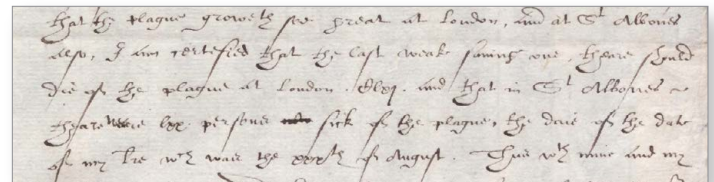 that the plague groweth soe great at London, and at St Albones
also, I am certefied that the last weake saving one, theare should
die of the plague at London . Dlxj . and that in St Albones ~
theare weare lxx persons sick of the plague, the daie of the date
of my lre wch was the xxxth of August . Thus wth mine and my